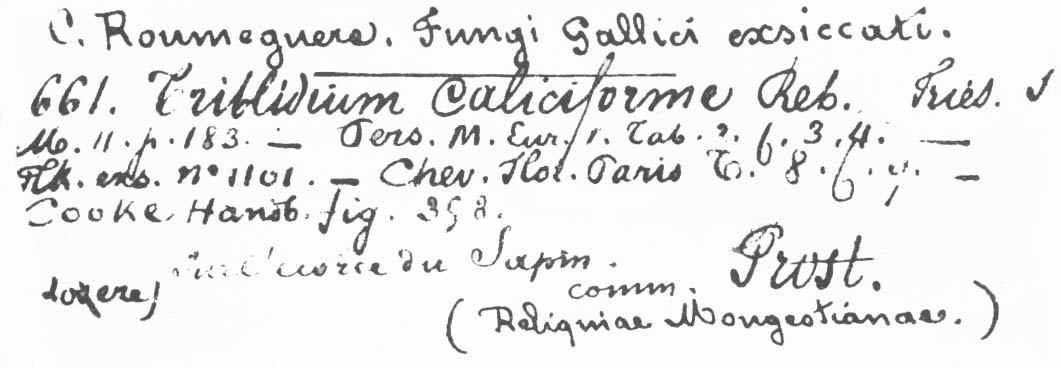 C. Roumeguere. Fungi Gallici exsiccati.
661. Triblidium Caliciforme Reb. Fries. S
M. 11. p. 183. — Pers. M. Eur. 1. Tab. 2. f. 3, 4. —
exs. nº 1101. — Chev. Flor. Paris T. 8. f. 7. —
Cooke Handb. fig. 358.
Sur l'ecorce du Sapin.
Lozere) comm. Prost.
(Reliquiae Mougeotianae.)